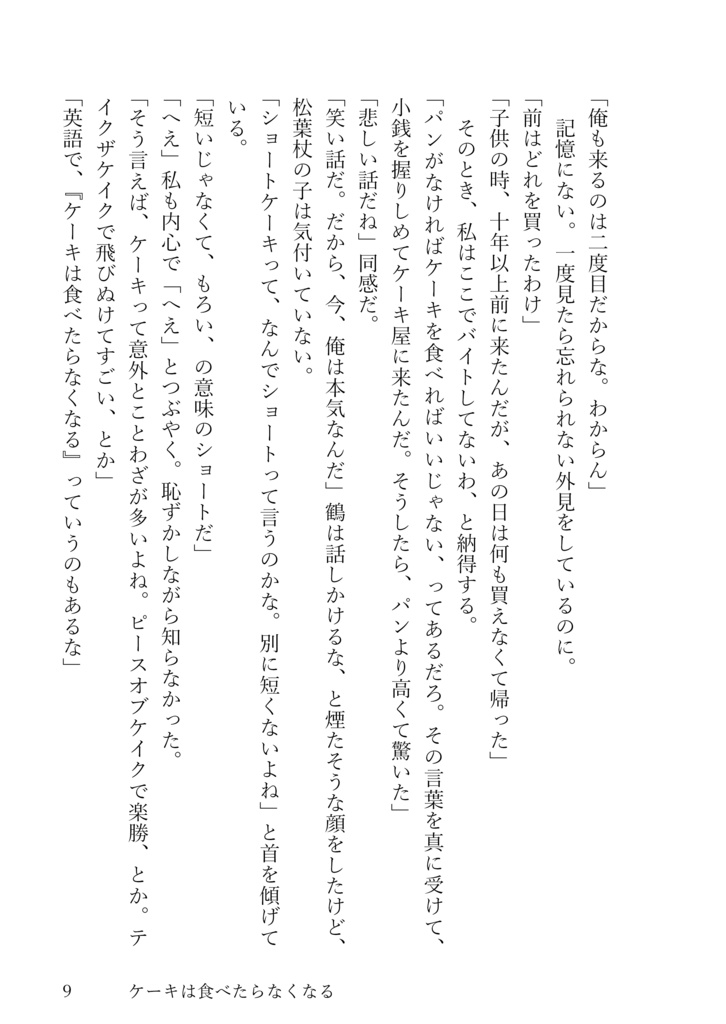 「俺も来るのは二度目だからな。わからん」
　記憶にない。一度見たら忘れられない外見をしているのに。
「前はどれを買ったわけ」
「子供の時、十年以上前に来たんだが、あの日は何も買えなくて帰った」
　そのとき、私はここでバイトしてないわ、と納得する。
「パンがなければケーキを食べればいいじゃない、ってあるだろ。その言葉を真に受けて、
小銭を握りしめてケーキ屋に来たんだ。そうしたら、パンより高くて驚いた」
「悲しい話だね」同感だ。
「笑い話だ。だから、今、俺は本気なんだ」鶴は話しかけるな、と煙たそうな顔をしたけど、
松葉杖の子は気付いていない。
「ショートケーキって、なんでショートって言うのかな。別に短くないよね」と首を傾げて
いる。
「短いじゃなくて、もろい、の意味のショートだ」
「へえ」私も内心で「へえ」とつぶやく。恥ずかしながら知らなかった。
「そう言えば、ケーキって意外とことわざが多いよね。ピースオブケイクで楽勝、とか。テ
イクザケイクで飛びぬけてすごい、とか」
「英語で、『ケーキは食べたらなくなる』っていうのもあるな」
9
ケーキは食べたらなくなる